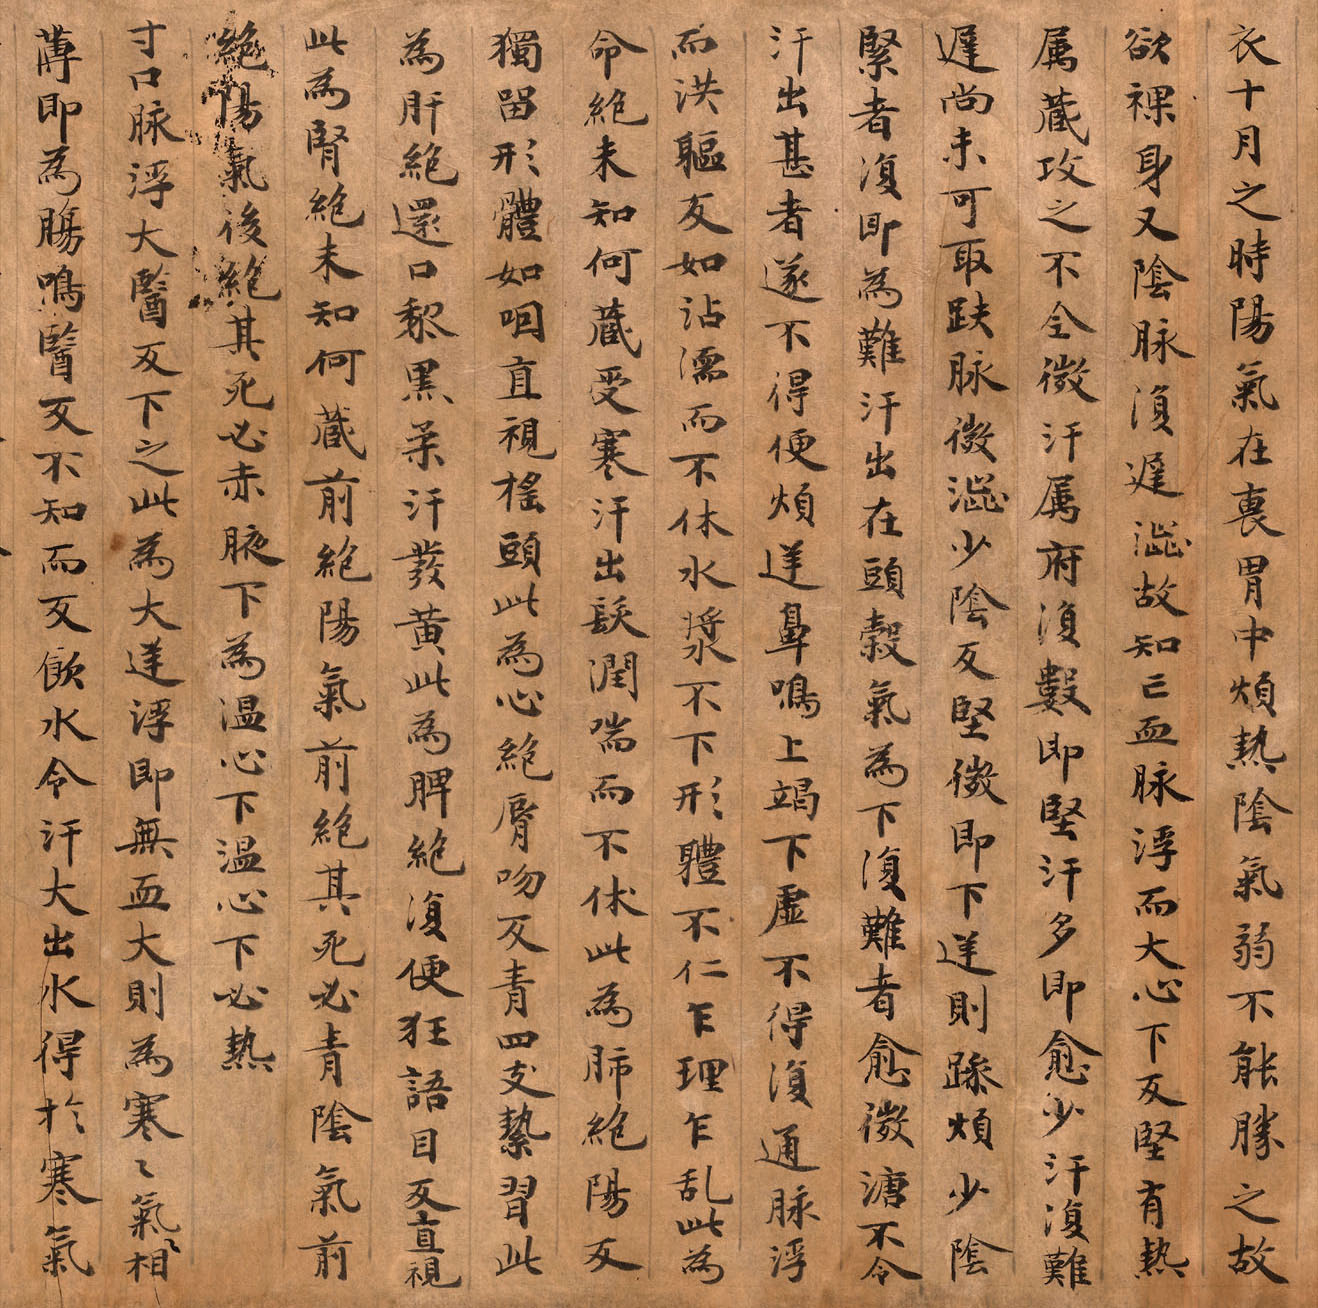 衣十月之時陽氣在裏胃中煩熱陰氣弱不能勝之故
欲裸身又陰脉復遲澁故知亡血脉浮而大心下反堅有熱
属藏攻之不令微汗属府復數即堅汗多即愈少汗復難
遲尚未可取趺脉微澁少陰反堅微即下逆則躁煩少陰
緊者復即為難汗出在頭穀氣為下復難者愈微溏不令
汗出甚者遂不得便煩逆鼻鳴上竭下虛不得復通脉浮
而洪軀反如沾濡而不休水漿不下形軆不仁乍理乍乱此為
命絶未知何藏受寒汗出髮潤喘而不休此為肺絶陽反
獨留形體如咽直視榣頭此為心絶脣吻反青四支漐習此
為肝絶還口黎黒柔汗發黄此為脾絶復便狂語目反直視
此為腎絶未知何藏前絶陽氣前絶其死必青陰氣前
絶陽氣後絶其死必赤腋下為温心下温心下必熱
寸口脉浮大醫反下之此為大逆浮即無血大則為寒〻氣〻相
薄即為腸鳴醫反不知而反飲水令汗大出水得扵寒氣